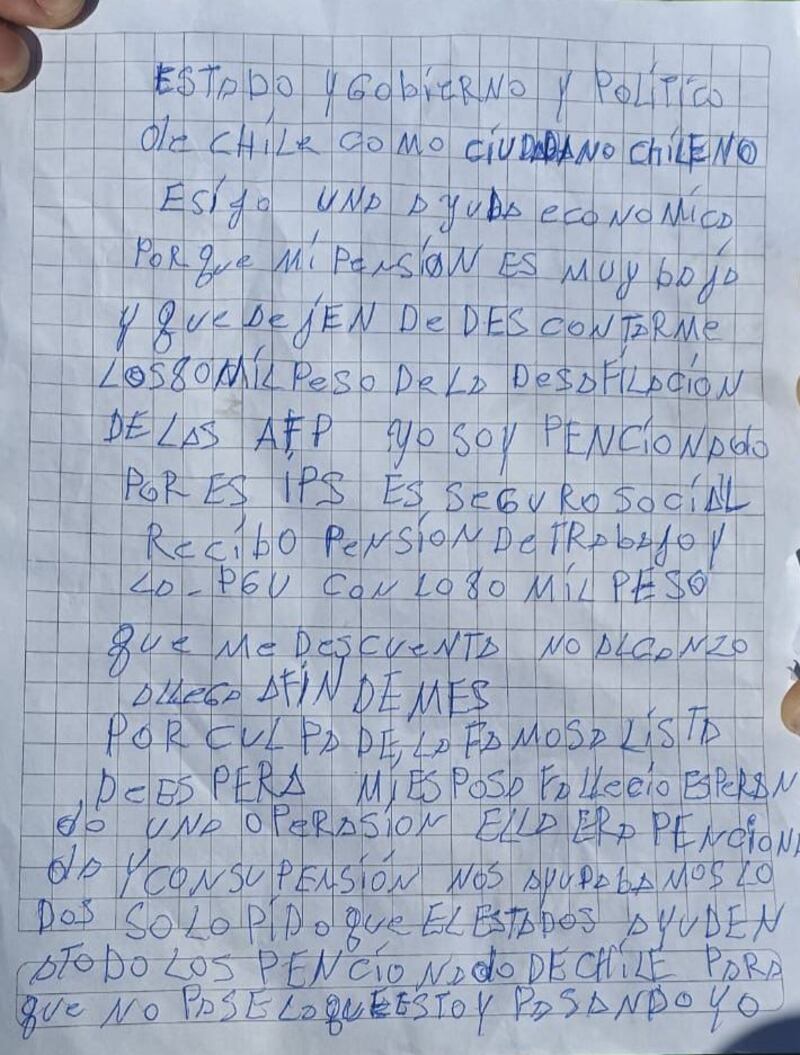 ESTADO Y GobiERNO Y POLíTíCO
de CHíLe COMO CíUDADANO CHíLENO
ESíjo UNA AyUDA ecONOMíCA
PORque Mí PeNSíÓN ES MUY bAjA
Y que DejEN De DESCONTARMe
LOS 80 MíL PeSO De LA DeSAFíLACíóN
DE LAS AFP yo SOY PENCíONAdo
POR ES íPS ES SeGURO SOCíAL
RecíbO PeNSíON De TRAbAjO Y
LA-PGU CON LO 80 MíL PESO
que Me DeSCUeNTA NO ALCANZO
A LLEGA A FíN DE MES
POR CULPA DE LA FAMOSA LíSTA
De ESPERA Mi ESPOSA FALLecíó ESPeRAN
do UNA OPeRASíON ELLA ERA PENCíONA
dA Y CON SU PENSíóN NOS AYUDABAMOS LO
DOS SOLO PíDO que EL ESTADOS AYUDEN
A TODO LOS PENCíONAdo DE CHíLE PARA
que NO PASE LO que ESTOY PASANDO YO